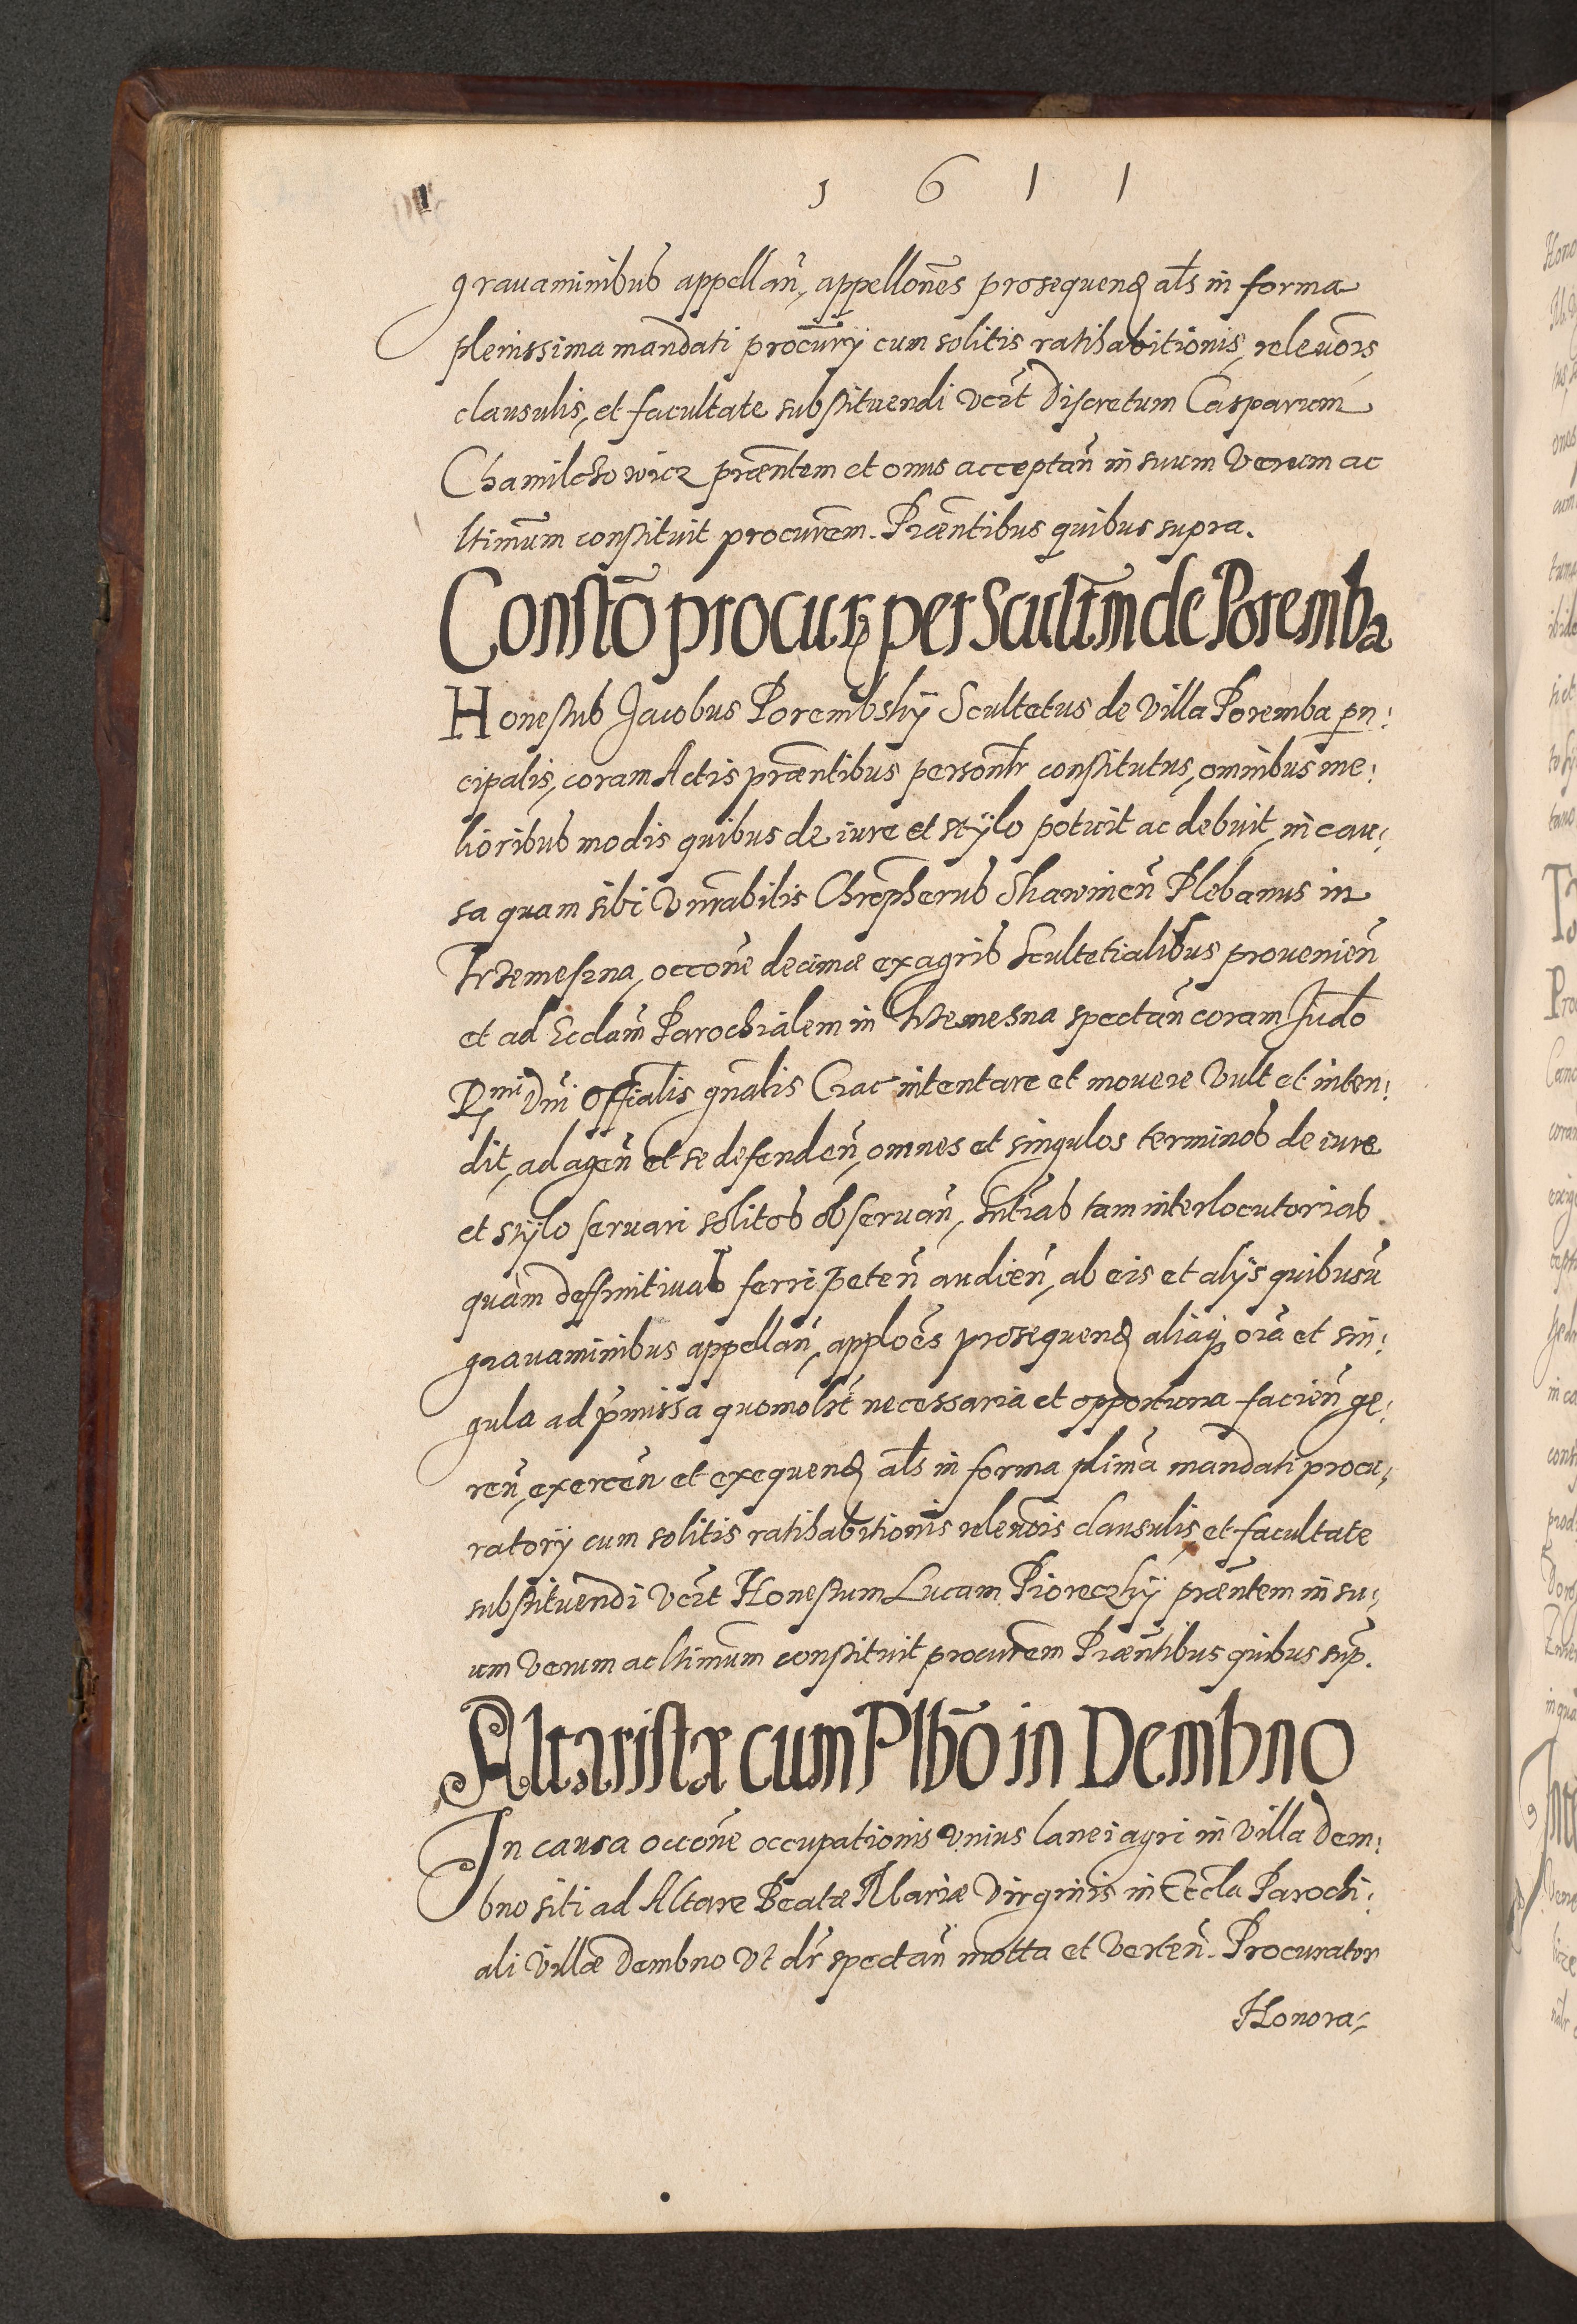 1 6 1 1
gravaminibus appellan̄, appellōnes prosequend als in forma
plenissima mandati procūrij cum solitis ratihabitionis, relevōis
clausulis, et facultate substituendi Vcit Discretum Casparum
Chamilchowicz præntem et onus acceptan̄ in suum Verum ac
ltimūm constituit procurem. Præntibus quibus supra.
Constō procur per Scultm̄ de Poremba
Honestus Jacobus Porembskÿ Scultetus de Villa Poremba pn:
cipalis, coram Actis præntibus personlr constitutus, omnibus me:
lioribus modis quibus de iure et stÿlo potuit ac debuit, in cau:
sa quam sibi Vnrabilis Chrōpherus Skawinen̄ Plebanus in
Trzemesna, occōne decimæ ex agris Scultetialibus provenien̄
et ad Eccları̄m Parochialem in Trzemesna spectan̄ coram Judō
Rmi Dni Offıalis gn̄alis Crac intentare et movere Vult et inten:
dit, ad agen̄ et se defenden̄, omnes et singulos terminos de iure
et stÿlo servari solitos observan̄, sntias tam interlocutorias
quàm deffinitivas ferri peten̄ audien̄, ab eis et alijs quibusū
gravaminibus appellan̄, applōes prosequend aliaq ōia et sin:
gula ad pmissa quomolt necessaria et opportuna facien̄ ge:
ren̄, exercen̄ et exequend als in forma plimā mandati procu:
ratorÿ cum solitis ratihabitionis relevōis clausulis et facultate
substituendi Vcit Honestum Lucam Pioreczkÿ præntem in su:
um Verum ac ltimūm constituit procurem Præntibus quibus sup.
Altaristæ cum Plbō in Dembno
In causa occōne occupationis Vnius lanei agri in Villa Dem:
bno siti ad Altare Beatæ Mariæ Virginis in Eccla Parochi:
ali Villæ Dembno Vt dr spectan̄ motta et Verten̄. Procurator
Honora: